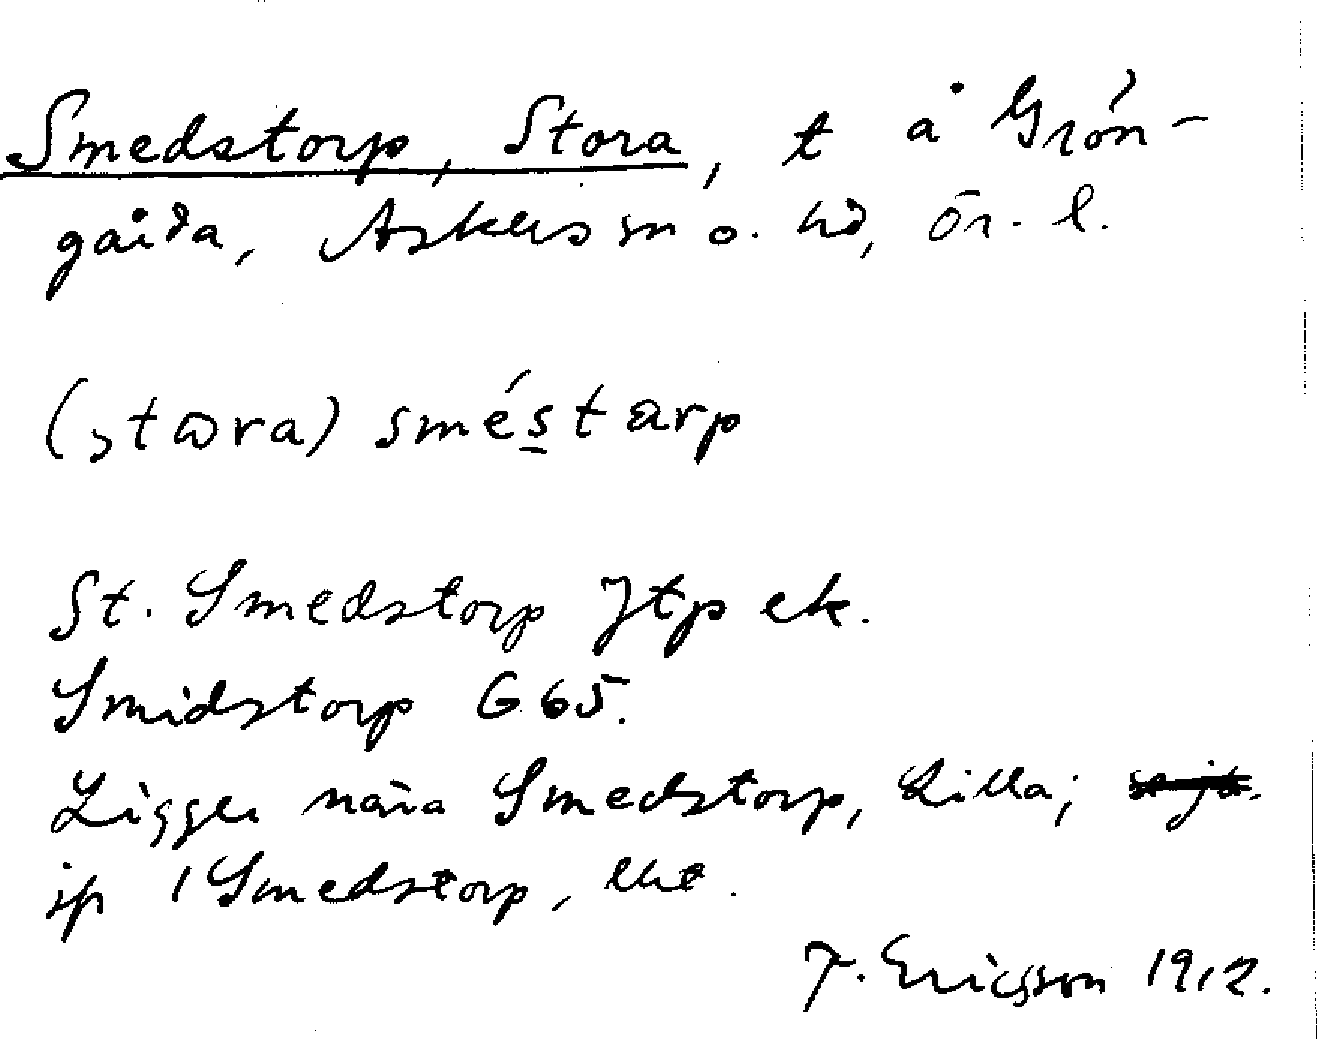 Smedstorp, Stora, t å Grön-
gärda, Askersm o. hd, ör. l.
(stɷra) sméstarp
St. Smedstorp Jtp ek.
Smidstorp G 65.
Ligger nära Smedstorp, Lilla;
ip / Smedstorp,
J. Ericsson 1912.